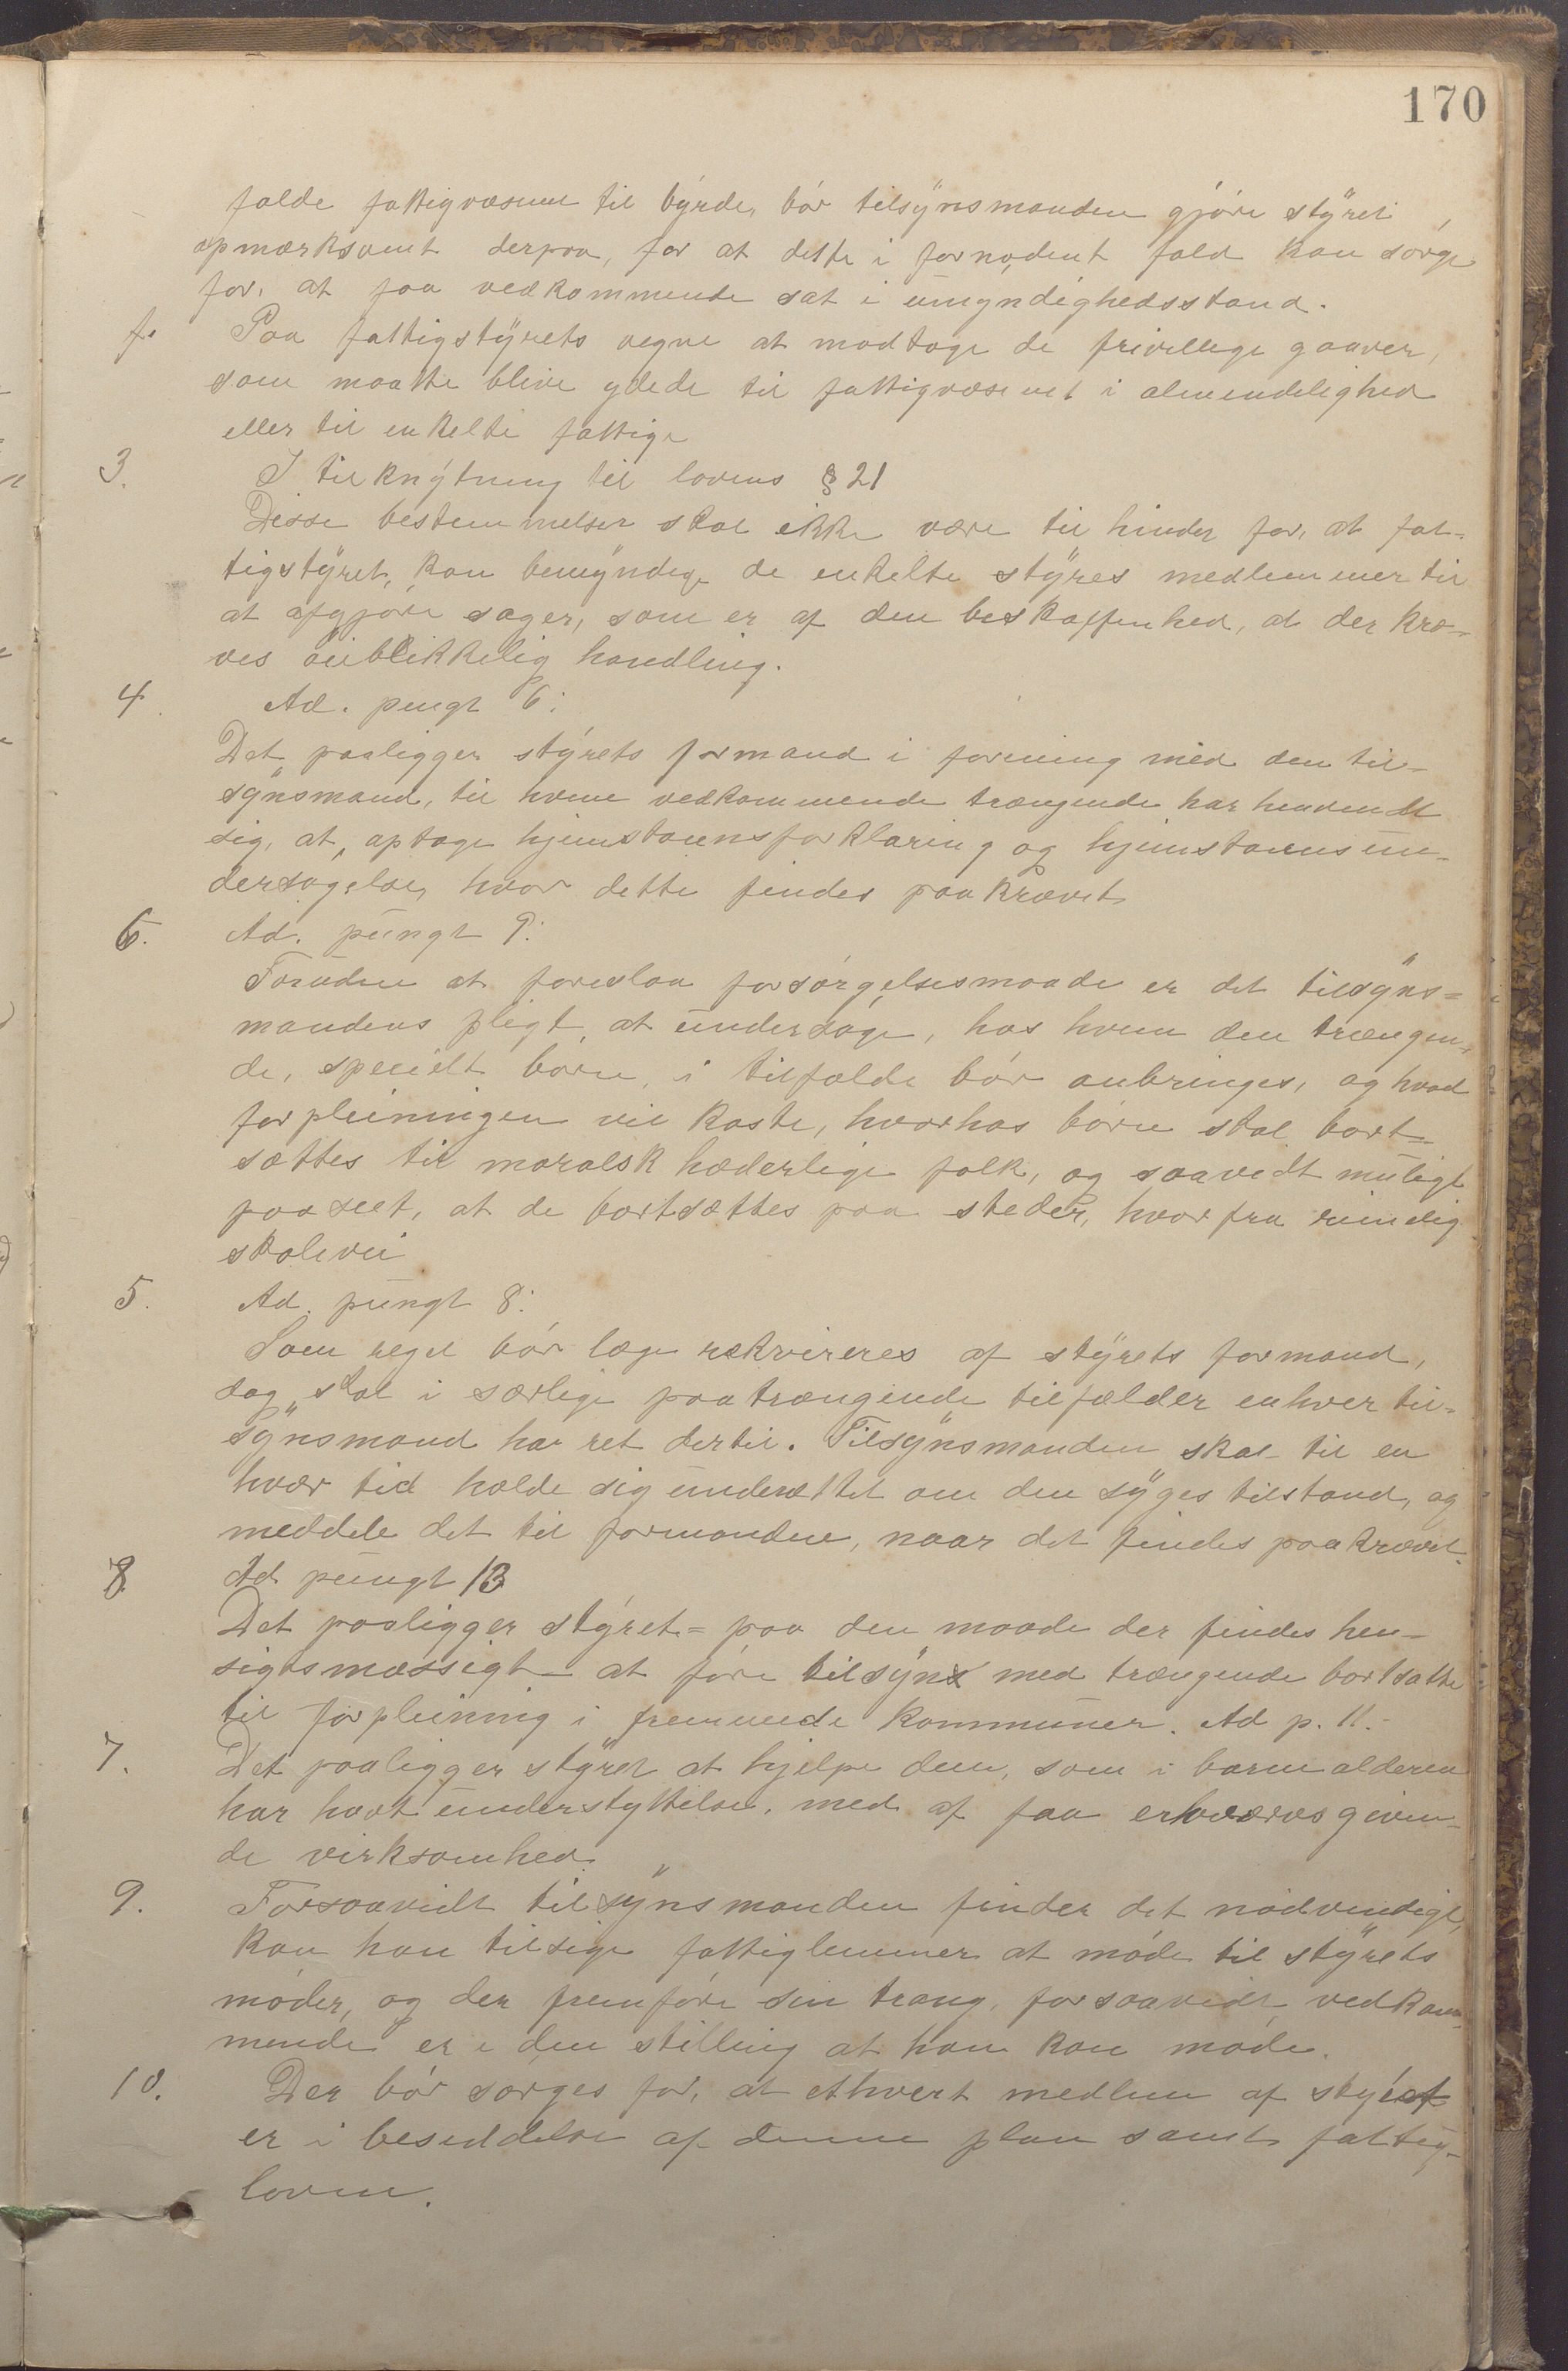 170
falde fattigvæsenet til byrde, bór tilsynsmanden gjóre styret
opmærksomt derpaa, for at dette i fornødent fald kan sórge
for, at faa vedkommende sat i umyndighedsstand.
f. Paa fattigstyrets vegne at modtage de frivillige gaaver,
som maatte blive ydede til fattigvæsenet i almendelighed
eller til enkelte fattige
3. I tilknytning til lovens § 21
Disse bestemmelser skal ikke være til hinder for, at fat-
tigstyret, kan bemyndige de enkelte styres medlemmer til
at afgjóre sager, som er af den beskaffenhed, at der kræ-
ves óieblikkelig handling.
4. Ad. pungt 6:
Det paaligger styrets formand i forening med den til-
synsmand, til hvem vedkommende trængende har henvendt
sig, at, optage hjemstavnsforklaring og hjemstavnsun-
dersøgelse, hvor dette findes paakrævet
6. Ad. pungt 9:
Foruden at foreslaa forsórgelsesmaade er det tilsyns-
mandens pligt at undersóge, hos hvem den trængen-
de, specielt bórn, i tilfælde bór anbringes, og hvad
forpleiningen vil koste, hvorhos bórn skal bort-
sættes til moralsk hæderlige folk, og saavidt muligt
paaseet, at de bortsættes paa steder, hvorfra rimelig
skolevei
5. Ad. pungt 8:
Som regel bór læge rekvireres af styrets formand,
dog skal i særlige paatrængende tilfælder enhver til-
synsmand har ret dertil. Tilsynsmanden skal til en
hvær tid holde sig underættet om den syges tilstand, og
meddele det til formanden, naar det findes paakrævet.
8 Ad pungt 13
Det paaligger styret= paa den maade der findes hen-
sigtsmæssigt at fóre tilsyn med trængende bortsatte
til forpleining i fremmede kommuner. Ad p. 11.-
7. Det paaligger styret at hjelpe dem, som i barnealderen
har havt understyttelse, med af faa erhværvsgiven-
de virksomhed.
9. Forsaavidt tilsynsmanden finder det nódvendigt,
kan han tilsige fattiglemmer at móde til styrets
móder, og der fremfóre sin trang, forsaavidt vedkom-
mende er i den stilling at han kan móde.
10. Der bór sórges for, at ethvert medlem af styret
er i besiddelse af denne plan samt fattig-
loven.